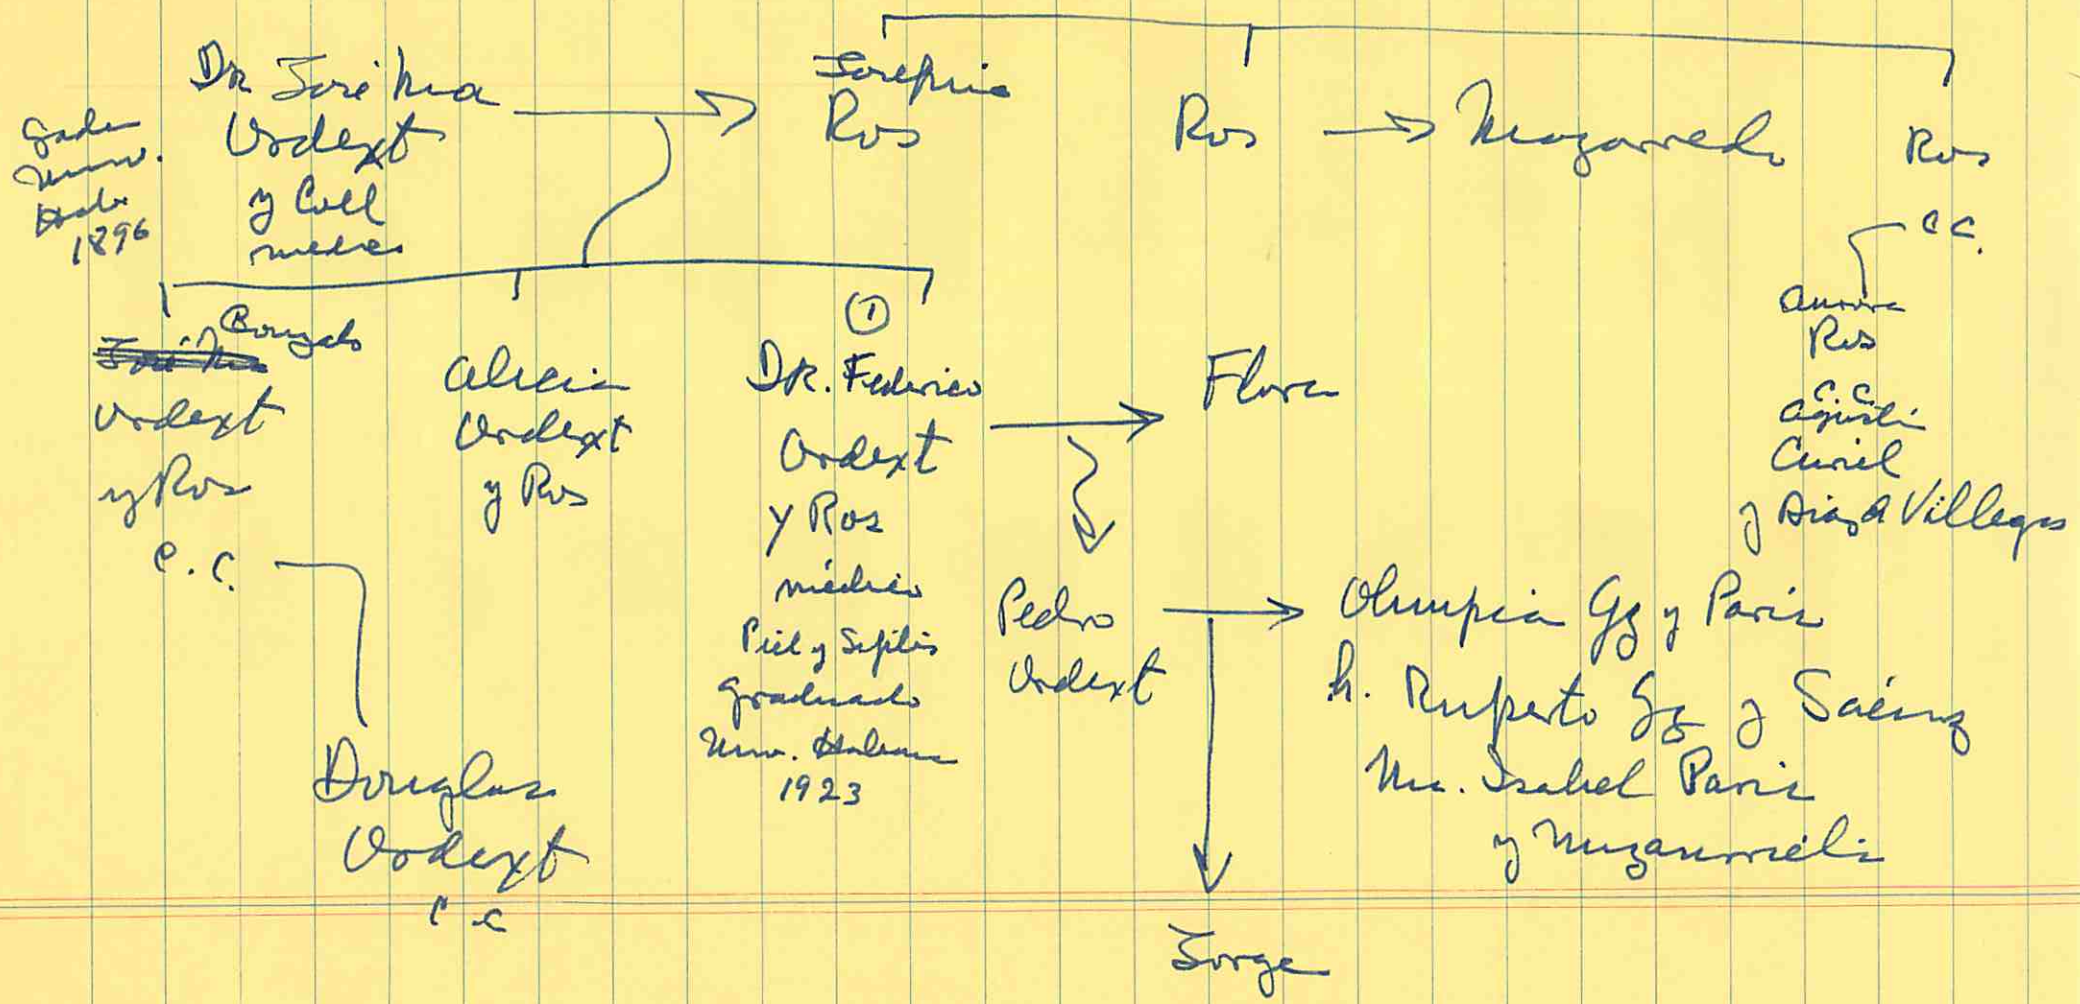 Dr José Ma
Ordext
y Coll
médico
Univ.
1896
Josefina
Ros
Ros
Mazarredo
Ros
c c.
Aurora
Ros
c c.
Agustín
Curiel
y Diaz d Villegas
Gonzalo
José Ma
Ordext
y Ros
c. c.
Alicia
Ordext
y Ros
1
DR. Federico
Ordext
y Ros
médico
Piel y Sífilis
graduado
Univ. Habana
1923
Flora
Pedro
Ordext
Olimpia Gz y Paris
h. Ruperto Gz y Saénz
Ma. Isabel Paris
y
Douglas
Ordext
c c
Jorge